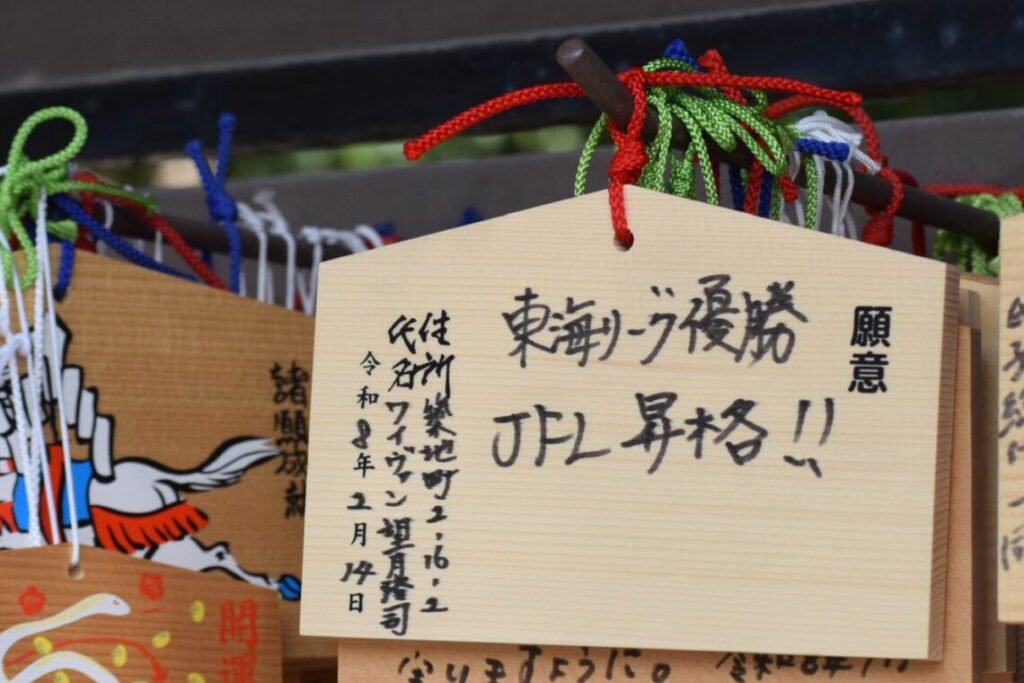 願意
東海リーグ優勝
JFL昇格!!
住所 築地町2-16-2
氏名 ワイヴァン 望月隆司
令和8年2月14日
諸願成就
開運